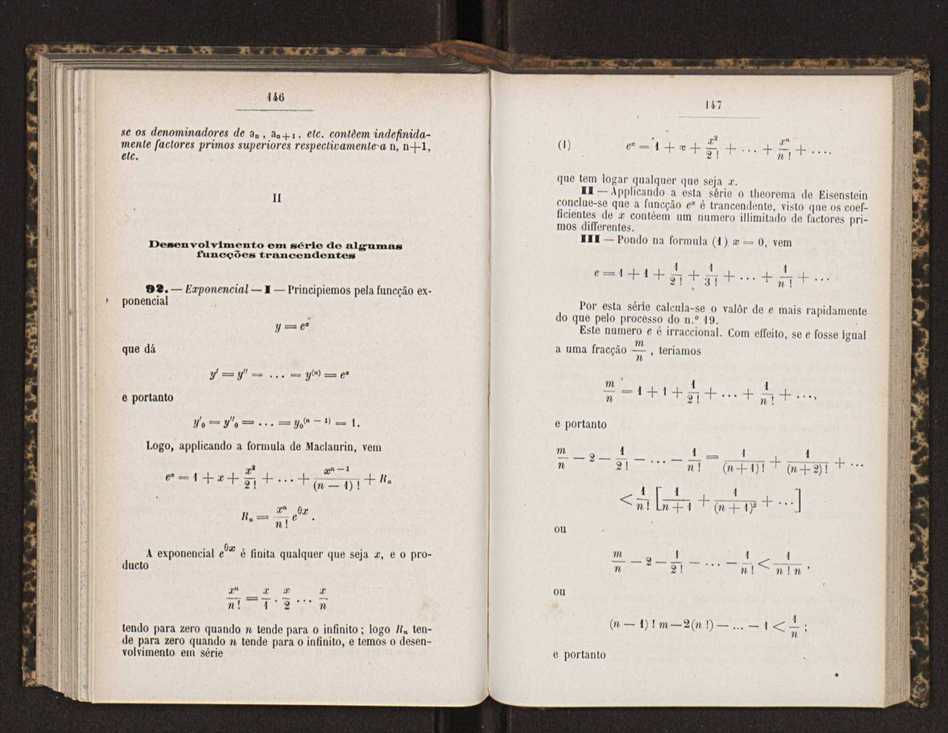 146
se os denominadores de aₙ, aₙ₊₁, etc. contêem indefinida-
mente factores primos superiores respectivamente a n, n+1,
etc.
II
Desenvolvimento em série de algumas
funcções trancendentes
92. — Exponencial — I — Principiemos pela funcção ex-
ponencial
y = eˣ
que dá
y' = y'' = ... = y⁽ⁿ⁾ = eˣ
e portanto
y'₀ = y''₀ = ... = y₀⁽ⁿ ⁻ ¹⁾ = 1.
Logo, applicando a formula de Maclaurin, vem
eˣ = 1 + x + x²/2! + ... + xⁿ⁻¹/(n — 1)! + Rₙ
Rₙ = xⁿ/n! e^θx.
A exponencial e^θx é finita qualquer que seja x, e o pro-
ducto
xⁿ/n! = x/1 . x/2 ... x/n
tendo para zero quando n tende para o infinito; logo Rₙ ten-
de para zero quando n tende para o infinito, e temos o desen-
volvimento em série
147
(1) eˣ = 1 + x + x²/2! + ... + xⁿ/n! + ....
que tem logar qualquer que seja x.
II — Applicando a esta série o theorema de Eisenstein
conclue-se que a funcção eˣ é trancendente, visto que os coef-
ficientes de x contêem um numero illimitado de factores pri-
mos differentes.
III — Pondo na formula (1) x = 0, vem
e = 1 + 1 + 1/2! + 1/3! + ... + 1/n! + ...
Por esta série calcula-se o valôr de e mais rapidamente
do que pelo processo do n.º 19.
Este numero e é irraccional. Com effeito, se e fosse igual
a uma fracção m/n, teriamos
m/n = 1 + 1 + 1/2! + ... + 1/n! + ...,
e portanto
m/n — 2 — 1/2! — ... — 1/n! = 1/(n + 1)! + 1/(n + 2)! + ...
< 1/n! [1/(n + 1) + 1/(n + 1)² + ...]
ou
m/n — 2 — 1/2! — ... — 1/n! < 1/n! 1/n.
ou
(n — 1)! m — 2(n!) — ... — 1 < 1/n;
e portanto